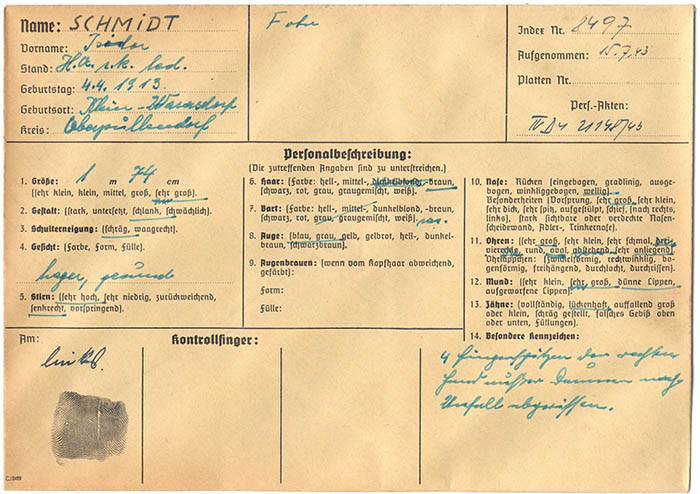 Name: SCHMIDT
Vorname: Isidor
Stand: H.A. r.k. led.
Geburtstag: 4.4.1913
Geburtsort: Klein-Warasdorf
Kreis: Oberpullendorf
Index Nr. 8497
Aufgenommen: 15.7.43
Platten Nr.
Pers.-Akten:
IV D 4 21148/43
Personalbeschreibung:
(Die zutreffenden Angaben sind zu unterstreichen.)
1. Größe: 1 m 74 cm
(sehr klein, klein, mittel, groß, sehr groß).
2. Gestalt: (stark, untersetzt, schlank, schwächlich).
3. Schulterneigung: (schräg, waagrecht).
4. Gesicht: (Farbe, Form, Fülle).
hager, gesund
5. Stirn: (sehr hoch, sehr niedrig, zurückweichend,
senkrecht, vorspringend).
6. Haar: (Farbe: hell-, mittel-, dunkelblond, -braun,
schwarz, rot, grau, graugemischt, weiß).
7. Bart: (Farbe: hell-, mittel-, dunkelblond, -braun,
schwarz, rot, grau, graugemischt, weiß) ras.
8. Auge: (blau, grau, gelb, gelbrot, hell-, dunkel-
braun, schwarzbraun).
9. Augenbrauen: (wenn vom Kopfhaar abweichend,
gefärbt):
Form:
Fülle:
10. Nase: Rücken (eingebogen, gradlinig, ausge-
bogen, winkliggebogen, wellig).
Besonderheiten (Vorsprung, sehr groß, sehr klein,
sehr dick, sehr spitz, aufgestülpt, schief, [nach rechts,
links], stark sichtbare oder verdeckte Nasen-
scheidewand, Adler-, Trinkernase).
11. Ohren: (sehr groß, sehr klein, sehr schmal,
viereckig, rund, oval, abstehend, sehr anliegend)
Ohrläppchen: (zwickelförmig, rechtwinklig, bo-
genförmig, freihängend, durchlocht, durchrissen).
12. Mund: (sehr klein, sehr groß, dünne Lippen,
aufgeworfene Lippen).
13. Zähne: (vollständig, lückenhaft, auffallend groß
oder klein, schräg gestellt, falsches Gebiß oben
oder unten, Füllungen).
14. Besondere Kennzeichen:
4 Fingerspitzen der rechten
Hand außer Daumen nach
Unfall abgerissen.
Am:
links.
Kontrollfinger: